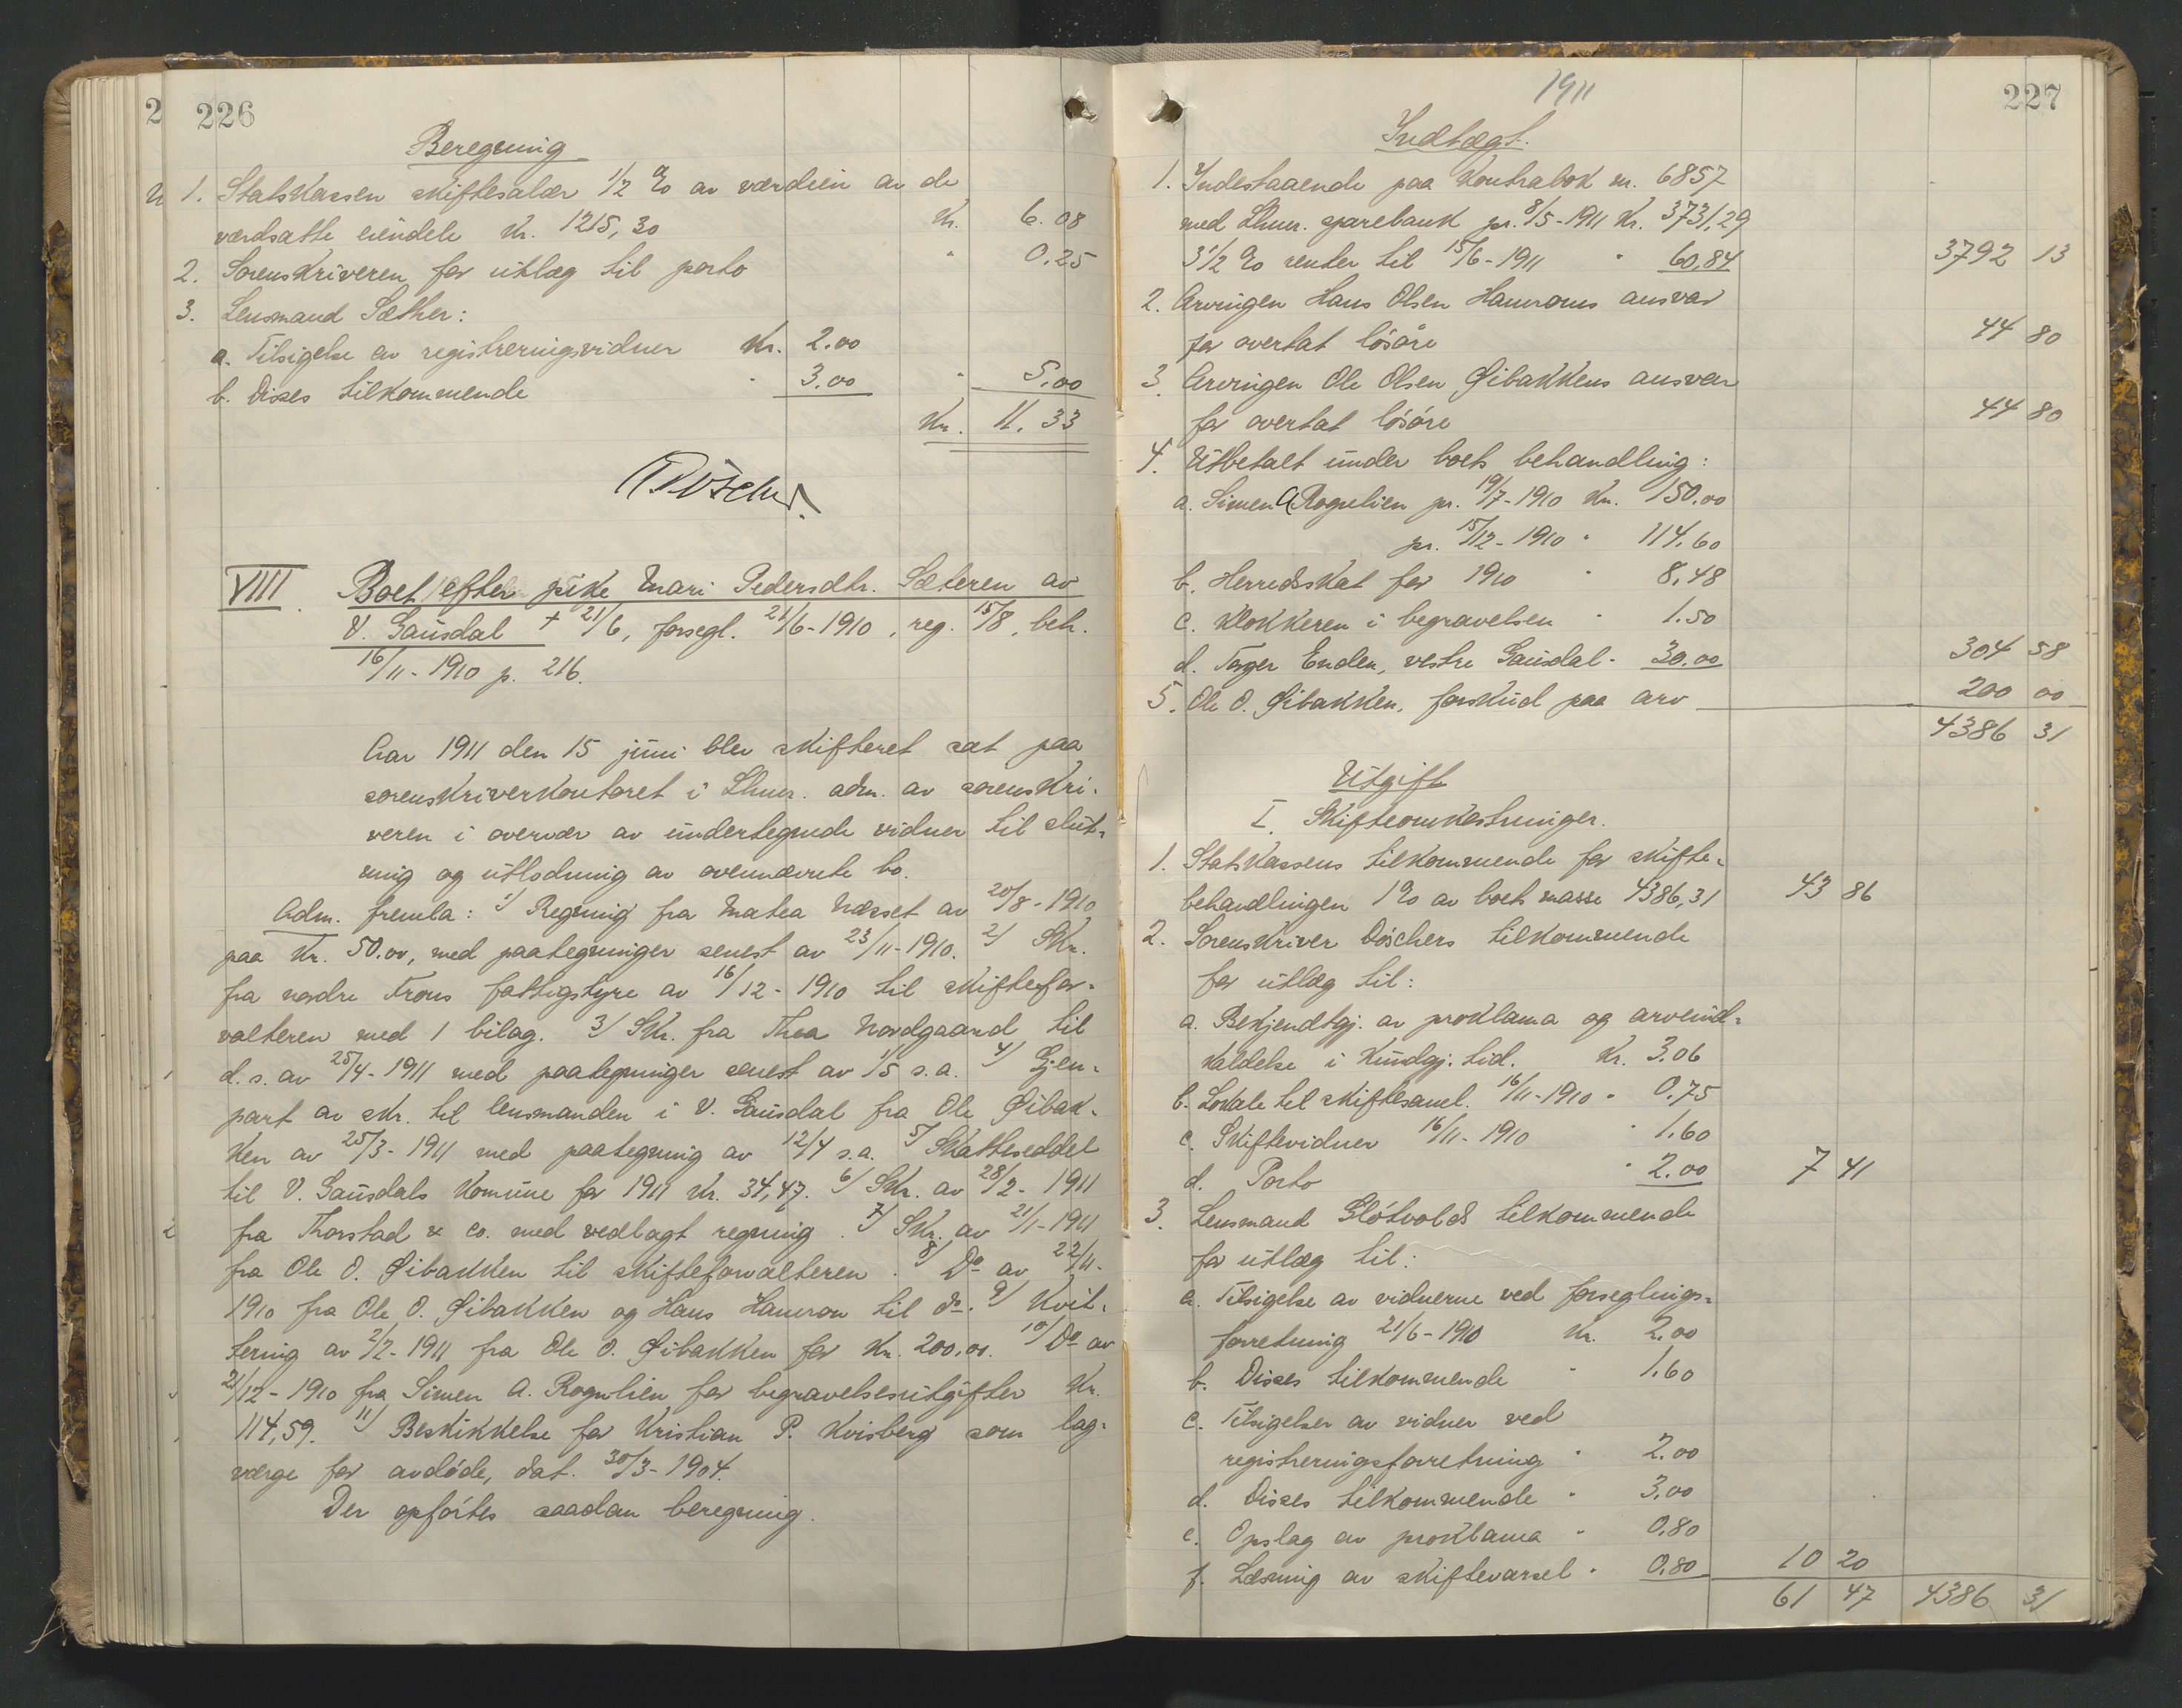 226
Beregning
1. Statskassen skiftesalær 1/2 % av værdien av de
værdsatte eiendele kr. 1215,30 kr. 6.08
2. Sorenskriveren for utlæg til porto " 0.25
3. Lensmand Sæther:
a. Tilsigelse av registreringsvidner kr. 2.00
b. Disses tilkommende " 3.00 " 5.00
Kr. 11.33
Døscher.
VIIII. Boet efter pike Mari Pedersdtr. Sæteren av
V. Gausdal † 21/6, forsegl. 21/6-1910, reg. 15/8, beh.
16/11-1910 p. 216.
Aar 1911 den 15 juni blev skifteret sat paa
sorenskriverkontoret i Lhmr. adm. av sorenskri-
veren i overvær av undertegnede vidner til slut-
ning og utlodning av ovennævnte bo.
Adm. fremla: 1/ Regning fra Matea Næsset av 20/8-1910
paa kr. 50.00, med paategninger senest av 23/11-1910. 2/ Skr.
fra nordre Frons fattigstyre av 16/12-1910 til skiftefor-
valteren med 1 bilag. 3/ Skr. fra Thea Nordgaard til
d.s. av 25/4-1911 med paategninger senest av 1/5 s.a. 4/ Gjen-
part av skr. til lensmanden i V. Gausdal fra Ole Øibak-
ken av 25/3-1911 med paategning av 12/4 s.a. 5/ Skatteseddel
til V. Gausdals Komune for 1911 kr. 34,47. 6/ Skr. av 28/2-1911
fra Thorstad & co. med vedlagt regning. 7/ Skr. av 21/1-1911
fra Ole O. Øibakken til skifteforvalteren. 8/ Do av 22/11-
1910 fra Ole O. Øibakken og Hans Hamron til do. 9/ Kvit-
tering av 2/2-1911 fra Ole O. Øibakken for kr. 200,00. 10/ Do av
21/12-1910 fra Simen A. Rognlien for begravelsesutgifter kr.
114,59. 11/ Beskikkelse for Kristian P. Kvisberg som lag-
værge for avdøde, dat. 30/3-1904.
Der opførtes saadan beregning.
1911
227
Indtægt.
1. Indestaaende paa Kontrabok nr. 6857
med Lhmr. sparebank pr. 8/5-1911 Kr. 3731,29
3 1/2 % renter til 15/6-1911 " 60,84 3792 13
2. Arvingen Hans Olsen Hamrons ansvar
for overtat løsøre 44 80
3. Arvingen Ole Olsen Øibakkens ansvar
for overtat løsøre 44 80
4. Utbetalt under boets behandling:
a. Simen A Rognlien pr. 19/7-1910 Kr. 150.00
pr. 15/12-1910 " 114.60
b. Herredsskat for 1910 " 8,48
c. Klokkeren i begravelsen " 1.50
d. Torger Enden, vestre Gausdal " 30.00 304 58
5. Ole O. Øibakken, forskud paa arv 200 00
4386 31
Utgift
I. Skifteomkostninger.
1. Statskassens tilkommende for skifte-
behandlingen 1 % av boets masse 4386,31 43 86
2. Sorenskriver Døschers tilkommende
for utlæg til:
a. Bekjendtgj. av proklama og arveind-
kaldelse i Kundgj. tid. Kr. 3.06
b. Lokale til skiftesaml. 16/11-1910 " 0.75
c. Skiftevidner 16/11-1910 " 1.60
d. Porto " 2.00 7 41
3. Lensmand Sløtvolds tilkommende
for utlæg til:
a. Tilsigelse av vidnerne ved forseglings-
forretning 21/6-1910 kr. 2.00
b. Disses tilkommende " 1.60
c. Tilsigelser av vidner ved
registreringsforretning " 2.00
d. Disses tilkommende " 3,00
e. Opslag av proklama " 0.80
f. Læsning av skiftevarsel " 0.80 10 20
61 47 4386 31